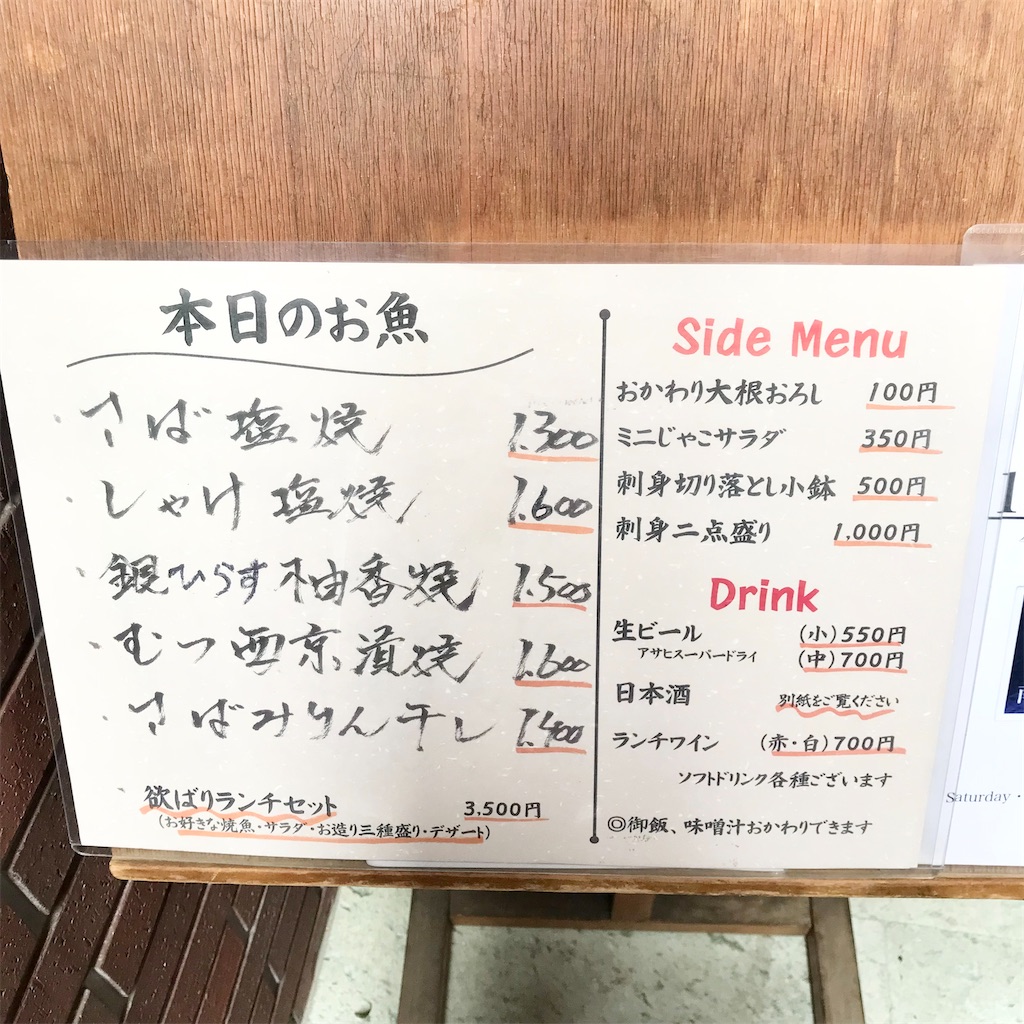 本日のお魚
・さば塩焼 1.300
・しゃけ塩焼 1.600
・銀ひらす柚香焼 1.500
・むつ西京漬焼 1.600
・さばみりん干し 1.400
・欲ばりランチセット 3,500円
(お好きな焼魚・サラダ・お造り三種盛り・デザート)
Side Menu
おかわり大根おろし 100円
ミニじゃこサラダ 350円
刺身切り落とし小鉢 500円
刺身二点盛り 1,000円
Drink
生ビール (小)550円
アサヒスーパードライ (中)700円
日本酒 別紙をご覧ください
ランチワイン (赤・白)700円
ソフトドリンク各種ございます
◎御飯、味噌汁おかわりできます
1
Saturday・